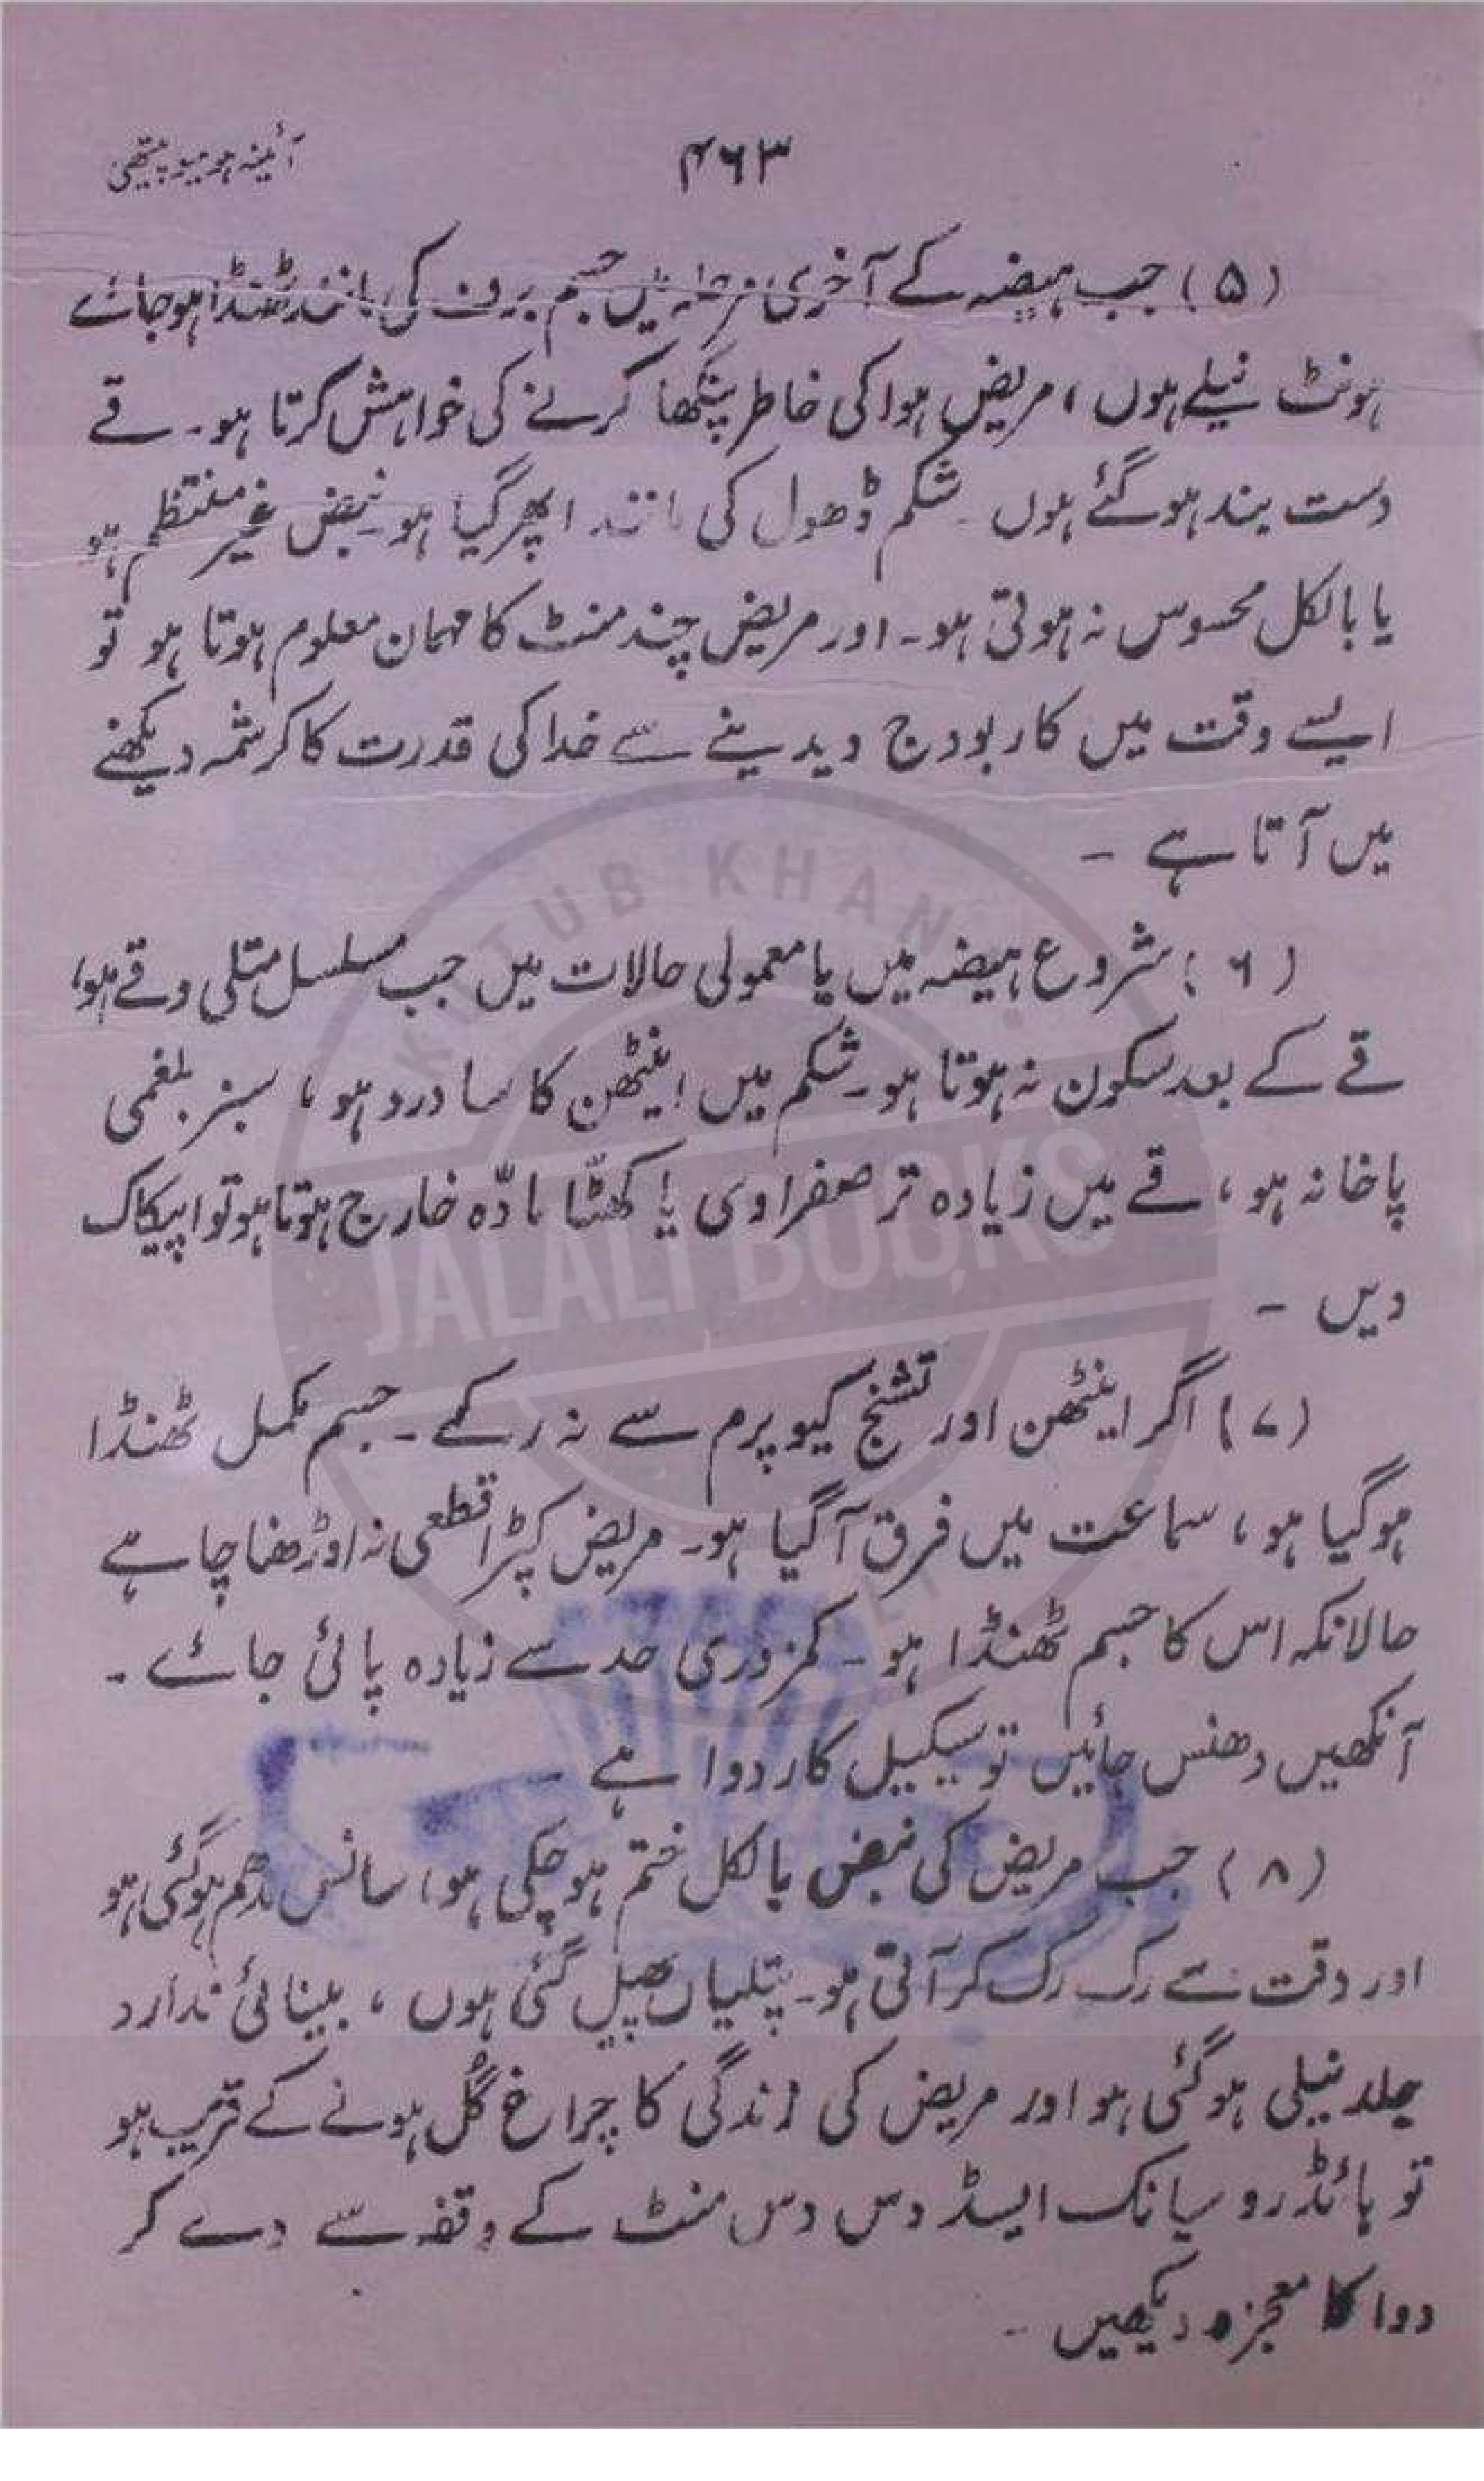 آئینہ ہومیوپیتھی
۴۶۳
(۵) جب ہیضہ کے آخری مرحلہ میں جسم برف کی مانند ٹھنڈا ہو جائے
ہونٹ نیلے ہوں ، مریض ہوا کی خاطر پنکھا کرنے کی خواہش کرتا ہو۔ قے
دست بند ہو گئے ہوں ۔ شکم ڈھول کی مانند اپھر گیا ہو۔ نبض غیر منتظم ہو
یا بالکل محسوس نہ ہوتی ہو۔ اور مریض چند منٹ کا مہمان معلوم ہوتا ہو تو
ایسے وقت میں کاربووج دیدینے سے خدا کی قدرت کا کرشمہ دیکھنے
میں آتا ہے ۔
(۶) شروع ہیضہ میں یا معمولی حالات میں جب مسلسل متلی و قے ہو،
قے کے بعد سکون نہ ہوتا ہو۔ شکم میں اینٹھن کا سا درد ہو ، سبز بلغمی
پاخانہ ہو ، قے میں زیادہ تر صفراوی یا کھٹّا مادّہ خارج ہوتا ہو تو اپیکاک
دیں ۔
(۷) اگر اینٹھن اور تشنج کیوپرم سے نہ رکے ۔ جسم مکمل ٹھنڈا
ہو گیا ہو ، سماعت میں فرق آ گیا ہو۔ مریض کپڑا قطعی نہ اوڑھنا چاہے
حالانکہ اس کا جسم ٹھنڈا ہو ۔ کمزوری حد سے زیادہ پائی جائے ۔
آنکھیں دھنس جائیں تو سیکیل کار دوا ہے ۔
(۸) جب مریض کی نبض بالکل ختم ہو چکی ہو ، سانس مدھم ہو گئی ہو
اور دقت سے رک رک کر آتی ہو۔ پتلیاں پھیل گئی ہوں ، بینائی ندارد
جلد نیلی ہو گئی ہو اور مریض کی زندگی کا چراغ گُل ہونے کے قریب ہو
تو ہائڈرو سیانک ایسڈ دس دس منٹ کے وقفہ سے دے کر
دوا کا معجزہ دیکھیں ۔
KUTUB KHAN
JALALI BOOKS